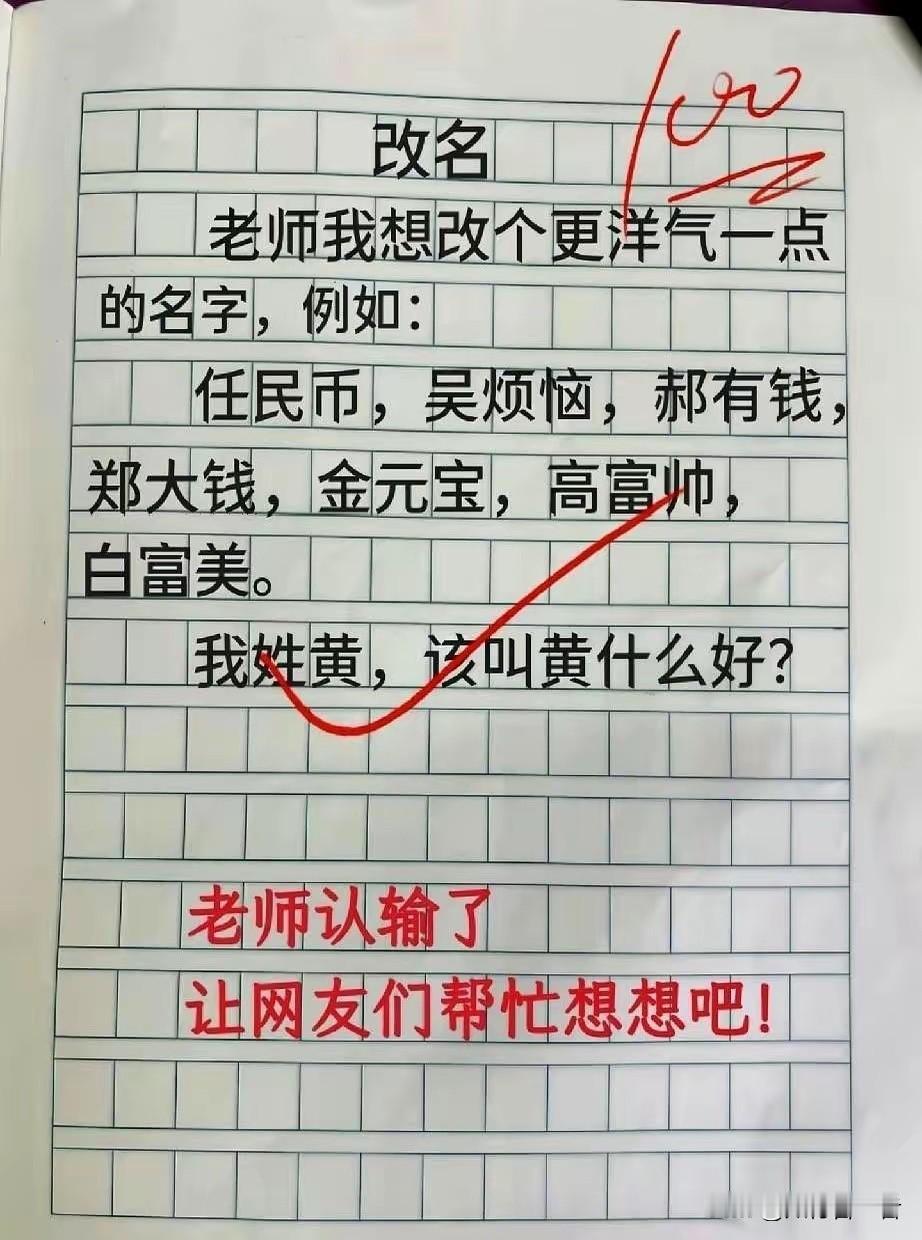 改名
100
老师我想改个更洋气一点
的名字，例如：
任民币，吴烦恼，郝有钱，
郑大钱，金元宝，高富帅，
白富美。
我姓黄，该叫黄什么好？
老师认输了
让网友们帮忙想想吧！